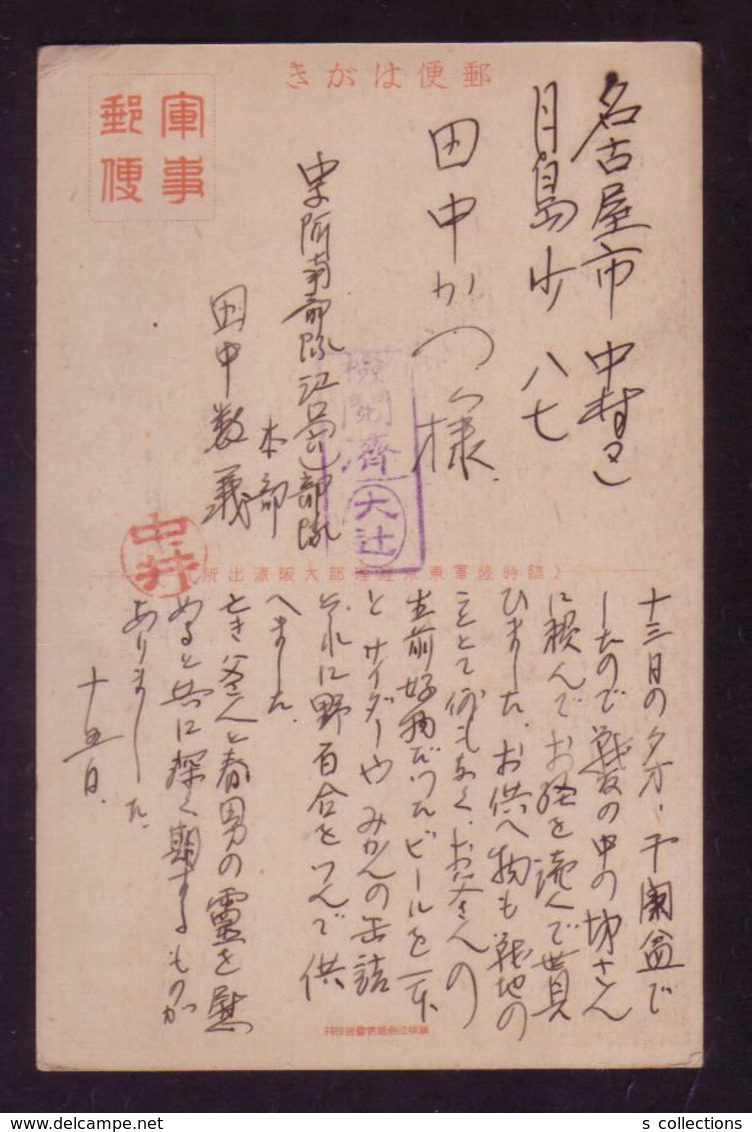 郵便はがき
軍事
郵便
名古屋市中村区
日島町八七
田中かつ様
中支阿南部隊江島部隊
本部
田中数義
中井
検閲済
大辻
(臨時陸軍東京経理部大阪派出所)
十三日の夕方、于蘭盆で
したので戦友の中の坊さん
に頼んでお経を読んで貰
ひました。お供へ物も戦地の
こととて何もなく、お父さんの
生前好物だつたビールを一本
とサイダーやみかんの缶詰
それに野百合をつんで供
へました。
亡き父さんと春男の霊を慰
めると共に深く期するものが
ありました。
十五日。
s collections